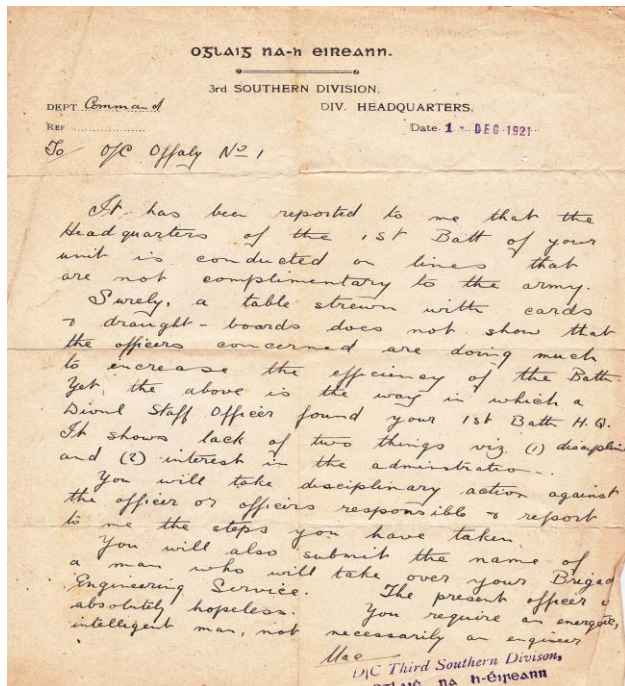 óglaiġ na-h eireann.
3rd SOUTHERN DIVISION.
DEPT. Command
DIV. HEADQUARTERS.
REF.
Date 1 - DEC 1921
To O/C Offaly No 1
It has been reported to me that the
Headquarters of the 1st Batt of your
unit is conducted on lines that
are not complimentary to the army.
Surely, a table strewn with cards
& draught-boards does not show that
the officers concerned are doing much
to increase the efficiency of the Battn.
Yet, the above is the way in which a
Divnl Staff Officer found your 1st Battn H.Q.
It shows lack of two things viz. (1) disciplin
and (2) interest in the administratio...
You will take disciplinary action against
the officer or officers responsible & report
to me the steps you have taken.
You will also submit the name of
a man who will take over your Brigad
Engineering Service. The present officer
absolutely hopeless. You require an energetic,
intelligent man, not necessarily an engineer
Mac
O/C Third Southern Divison,
óglaiġ na h-éireann